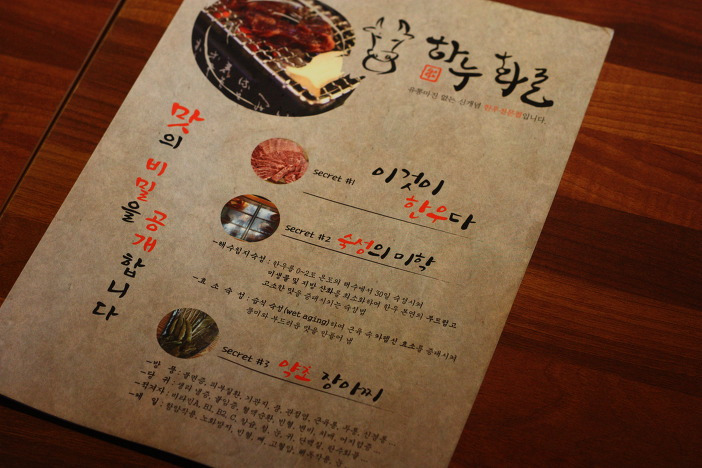 한우 화로
유통마진 없는 신개념 한우전문점입니다.
맛의 비밀을 공개합니다
secret #1 이것이
한우다
secret #2 숙성의 미학
-해수침지숙성 : 한우를 0~2도 온도의 해수에서 30일 숙성시켜
미생물 및 지방 산화를 최소화하여 한우 본연의 부드럽고
고소한 맛을 증대시키는 숙성법
-효소숙성 : 습식 숙성(wet aging)하여 근육 속 카텝신 효소를 증대시켜
풍미와 부드러움 맛을 만들어 냄
secret #3 약초 장아찌
-방 풍 :
-당 귀 :
비타민A, B1, B2, C,